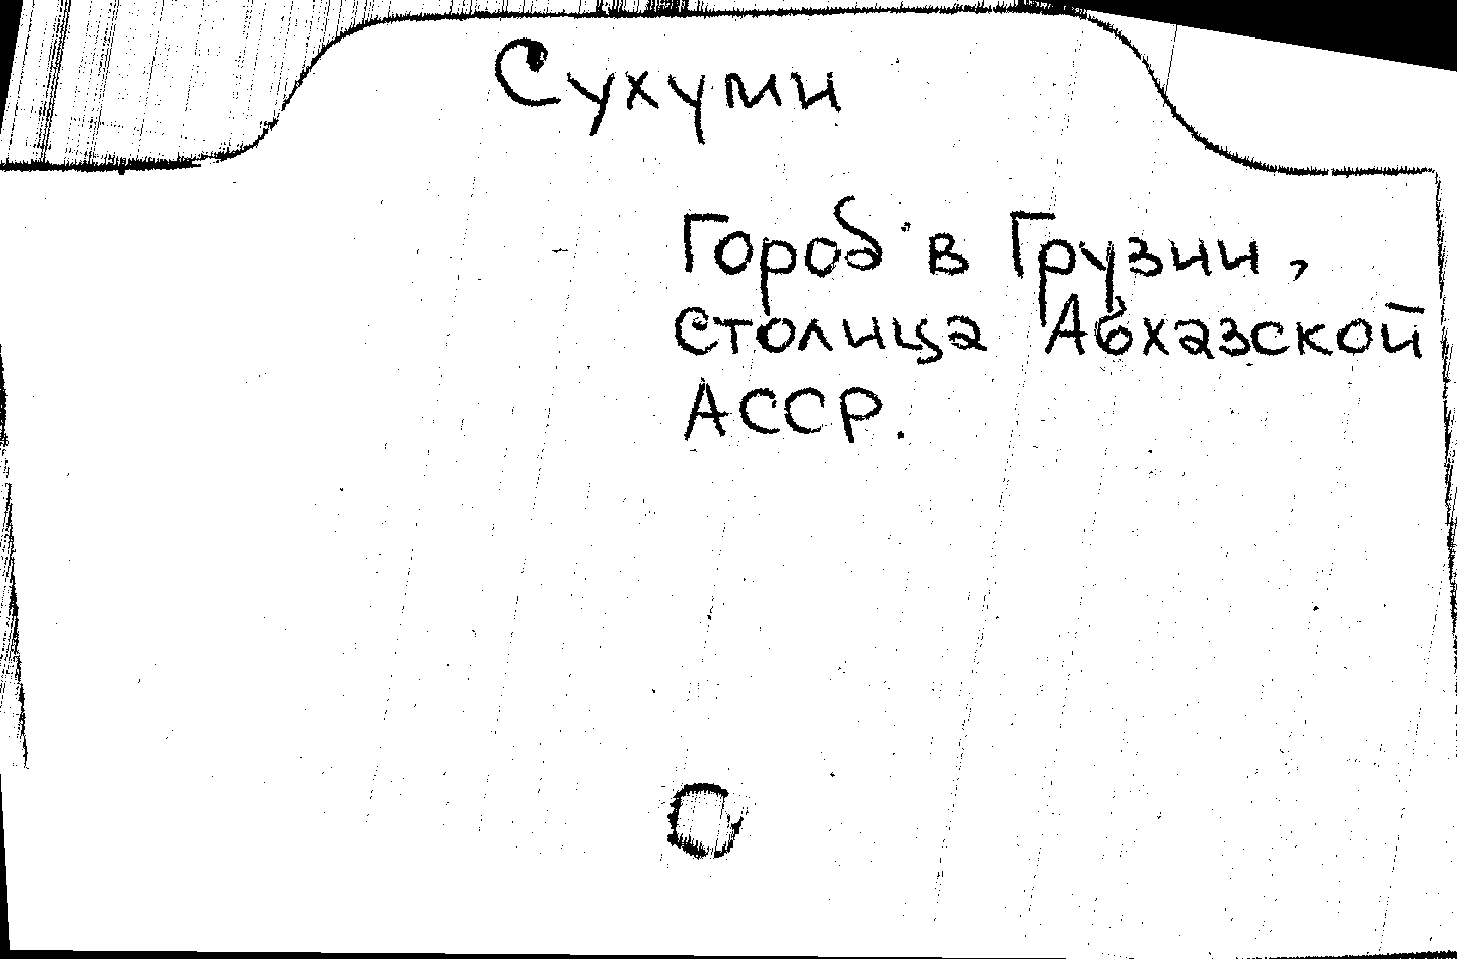 Сухуми
Город в Грузии,
столица Абхазской
АССР.